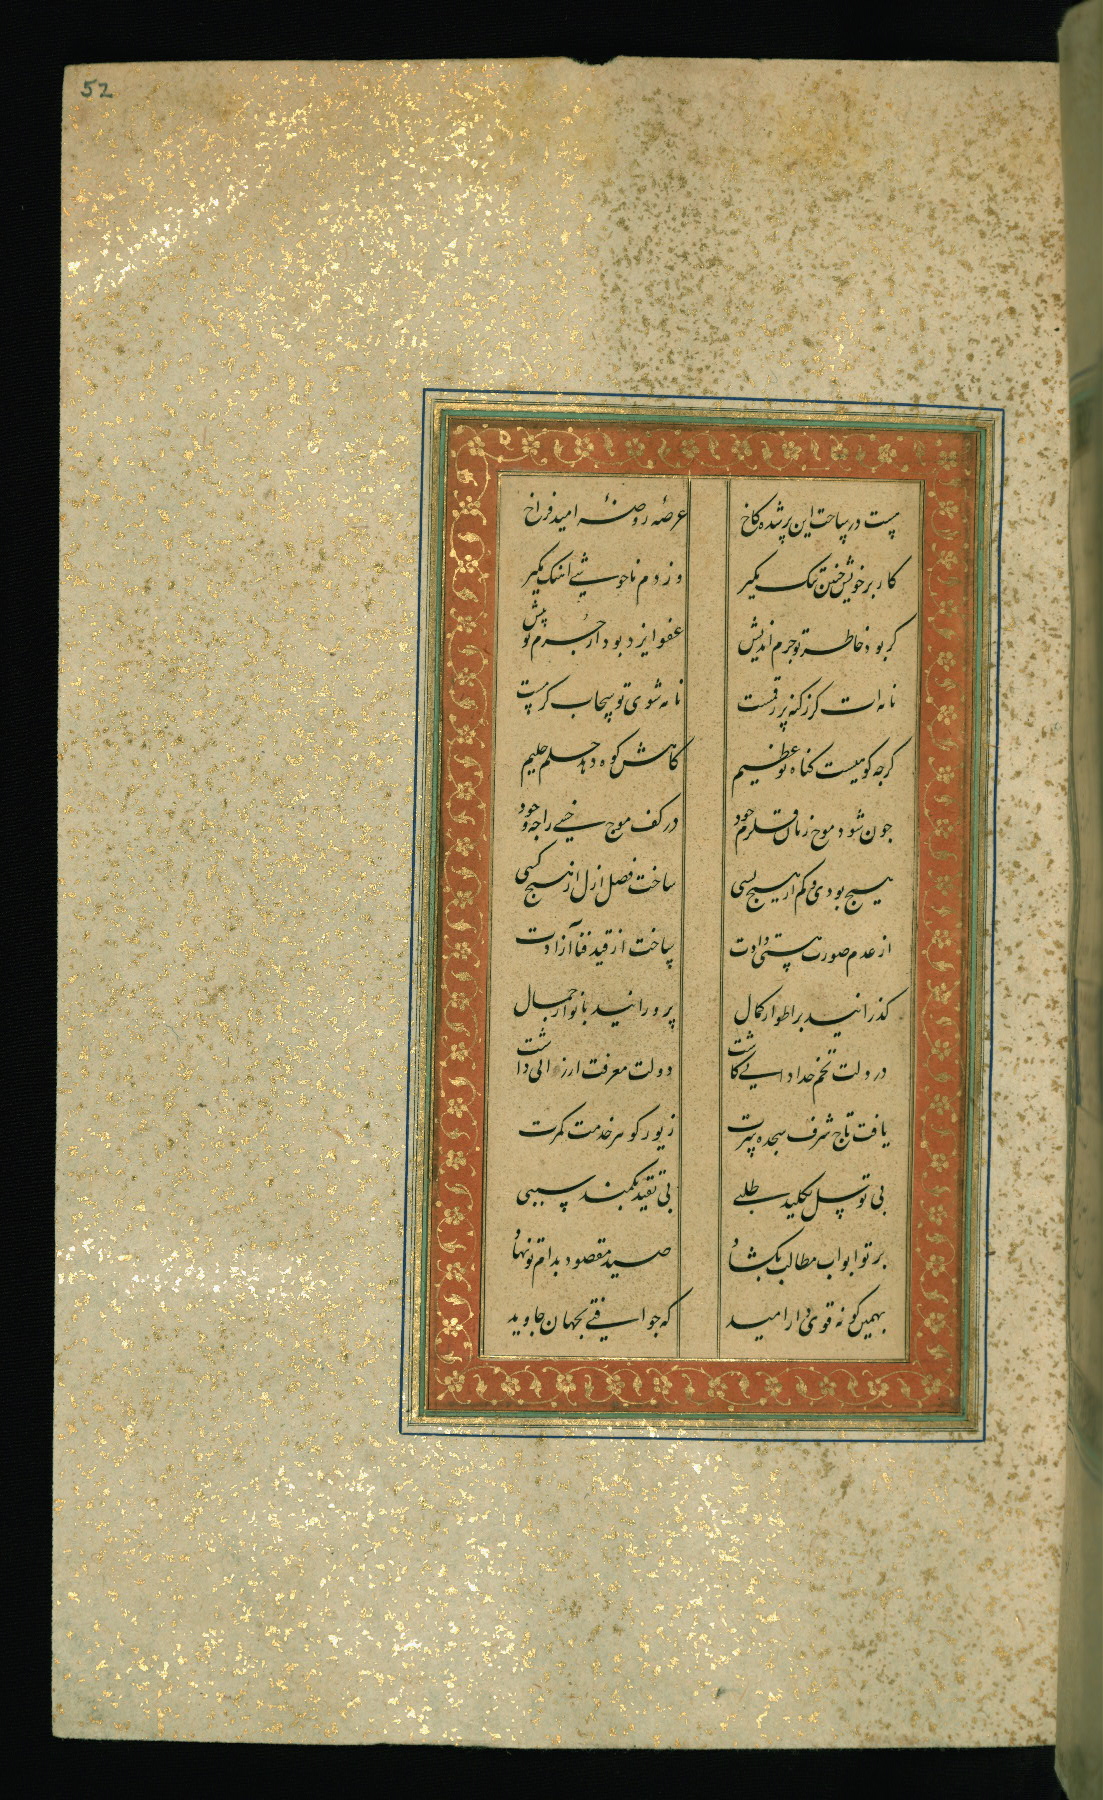 52
هست در ساحت این بر شده کاخ
عرصهٔ روضهٔ امید فراخ
کار بر خویش چنین تنک مکیر
وز دم ناخوشی آهنک مکیر
کر بود خاطر تو جرم اندیش
عفو ایزد بود از جرم تو پیش
نامه‌ات کر ز کنه پر رقمست
نامه شوی تو سحاب کرمست
کرچه کوهیست کناه تو عظیم
کاهش کوه دهد حلم حلیم
چون شود موج زنان قلزم جود
در کف موج خسی را چه وجود
هیچ بودی و کم از هیچ بسی
ساخت فضل ازل از هیچ کسی
از عدم صورت هستی دادت
ساخت از قید فنا آزادت
کذرانید بر اطوار کمال
پرورانید بانوار جمال
در دلت تخم خدادانی کاشت
دولت معرفت ارزانی داشت
یافت تاج شرف سجده سرت
زیور کوهر خدمت کمرت
بی توسل بکلید طلبی
بی تقید بکمند سببی
بر تو ابواب مطالب بکشاد
صید مقصود بدام تو نهاد
بهمین کونه قوی دار امید
که چو افتی بجهان جاوید